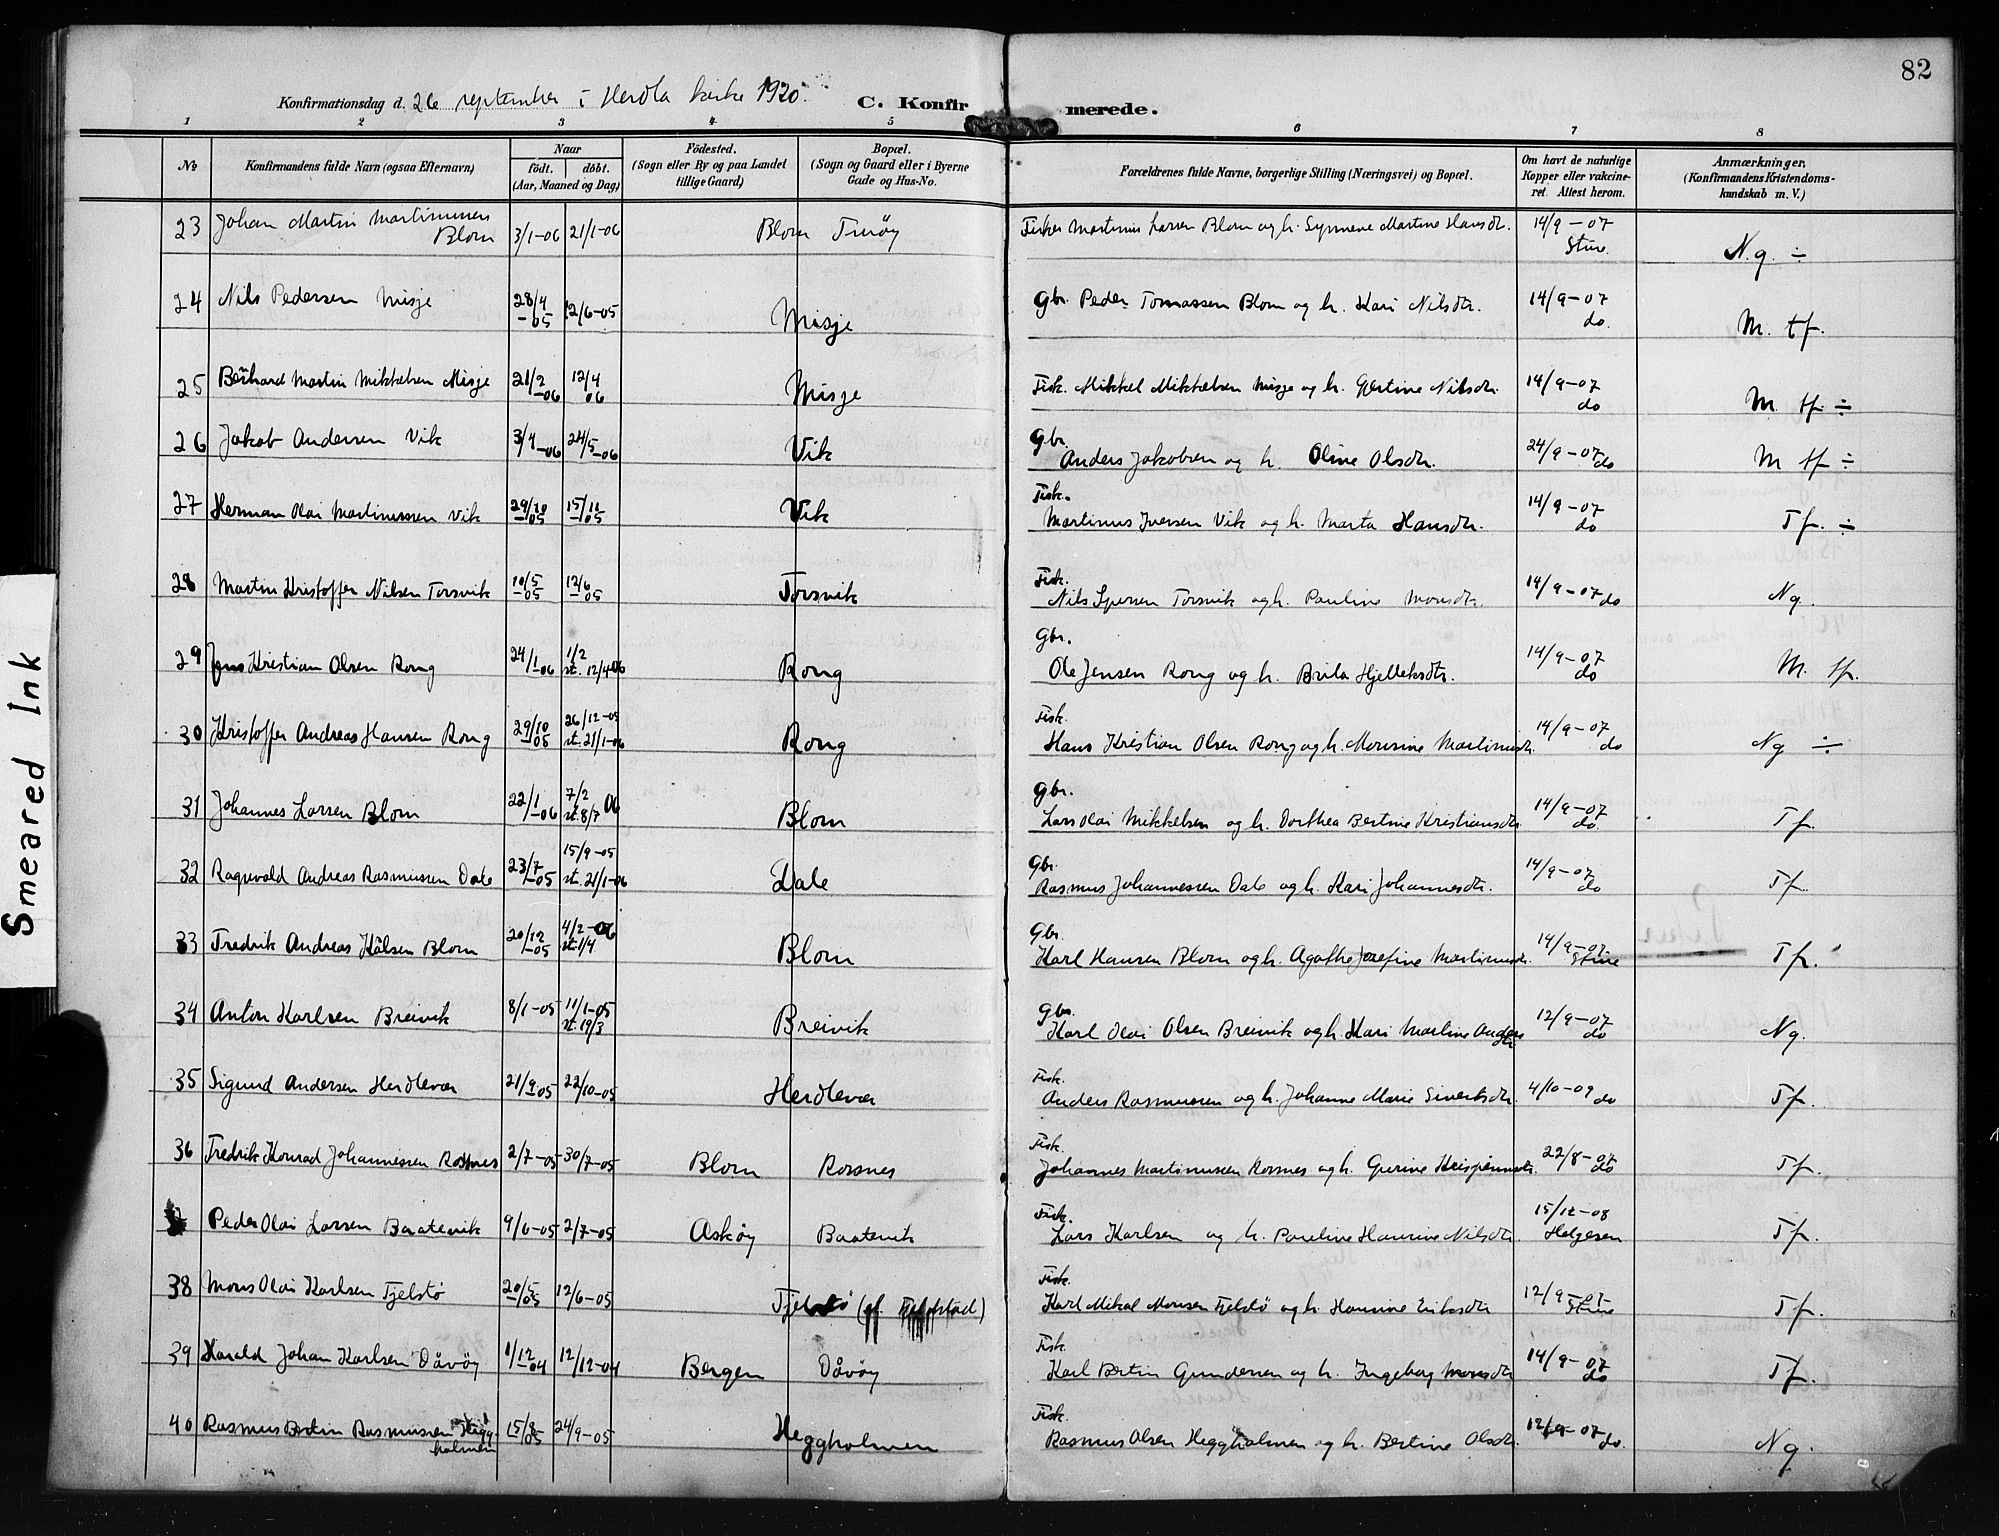 82
Konfirmationsdag d. 26 september i Herdla kirke 1920.
C. Konfirmerede.
1 2 3 4 5 6 7 8
No Konfirmandens fulde Navn (ogsaa Efternavn) Naar født. døbt. (Aar, Maaned og Dag) Fødested. (Sogn eller By og paa Landet tillige Gaard) Bopæl. (Sogn og Gaard eller i Byerne Gade og Hus-No. Forældrenes fulde Navne, borgerlige Stilling (Næringsvei) og Bopæl. Om havt de naturlige Kopper eller vakcineret. Attest herom. Anmærkninger, (Konfirmandens Kristendomskundskab m. V.)
23 Johan Martin Martinussen Blom 3/1-06 21/1-06 Blom Turøy Fisker Martinus Larsen Blom og h. Synneve Martine Hansdtr. 14/9-07 Sture N.g. ÷
24 Nils Pedersen Misje 28/4-05 12/6-05 Misje Gbr. Peder Tomassen Blom og h. Kari Nilsdtr. 14/9-07 do. M. tf.
25 Bernhard Martin Mikkelsen Misje 21/2-06 12/4 06 Misje Fisk. Mikkel Mikkelsen Misje og h. Gjertine Nilsdtr. 14/9-07 do M. tf. ÷
26 Jakob Andersen Vik 3/4-06 24/5-06 Vik Gbr. Anders Jakobsen og h. Oline Olsdtr. 24/9-07 do M tf ÷
27 Herman Olai Martinussen Vik 29/10-05 15/11-05 Vik Fisk. Martinus Iversen Vik og h. Marta Hansdtr. 14/9-07 do Tf. ÷
28 Martin Kristoffer Nilsen Torsvik 10/5-05 12/6-05 Torsvik Fisk. Nils Torsvik og h. Pauline Monsdtr. 14/9-07 do Ng.
29 Jens Kristian Olsen Rong 24/1-06 1/2 st. 12/4 06 Rong Gbr. Ole Jensen Rong og h. Brita 14/9-07 do M. tf.
30 Kristoffer Andreas Hansen Rong 29/10-05 26/12-05 st. 21/1-06 Rong Fisk. Hans Kristian Olsen Rong og h. Monsine Martinusdtr. 14/9-07 do Ng ÷
31 Johannes Larsen Blom 22/1-06 7/2 06 st. 8/7 Blom Gbr. Lars Olai Mikkelsen og h. Dorthea Bertine Kristiansdtr 14/9-07 do. Tf.
32 Ragnvald Andreas Rasmussen Dale 23/7-05 15/9-05 st. 21/1-06 Dale Gbr. Rasmus Johannessen Dale og h. Kari Johannesdtr. 14/9-07 do Tf.
33 Fredrik Andreas Blom 20/12-05 4/2-06 st. 1/4 Blom Gbr. Karl Hansen Blom og h. Agathe Josefine Martinusdtr. 14/9-07 Sture Tf.
34 Anton Karlsen Breivik 8/1-05 11/1-05 st. 19/3 Breivik Gbr. Karl Olai Olsen Breivik og h. Kari Martine Andersdtr 12/9-07 do Ng.
35 Sigurd Andersen Herdlevær 21/9-05 22/10-05 Herdlevær Fisk. Anders Rasmussen og h. Johanne Marie Sivertsdtr. 4/10-09 do Tf.
36 Fredrik Konrad Johannessen Rossnes 2/7-05 30/7-05 Blom Rossnes Fisk. Johannes Martinussen Rossnes og h. Gurine 22/8-07 do Tf.
Peder Olai Larsen Baatevik 9/6-05 2/7-05 Askøy Baatevik Fisk. Lars Karlsen og h. Pauline Hansine Nilsdtr. 15/12-08 Helgesen Tf.
38 Mons Olai Karlsen Fjelstø 20/5-05 12/6-05 Fjelstø Fisk. Karl Mikal Monsen Fjelstø og h. Hansine Eriksdtr 12/9-07 Sture Tf.
39 Harald Johan Karlsen Dåvøy 1/12-04 12/12-04 Bergen Dåvøy Fisk. Karl Bertin Gundersen og h. Ingeborg Monsdtr 14/9-07 do Tf.
40 Rasmus Bertin Rasmussen Heggholmen 15/8-05 24/9-05 Heggholmen Fisk. Rasmus Olsen Heggholmen og h. Bertine Olsdtr. 12/9-07 do. Ng.
Smeared Ink